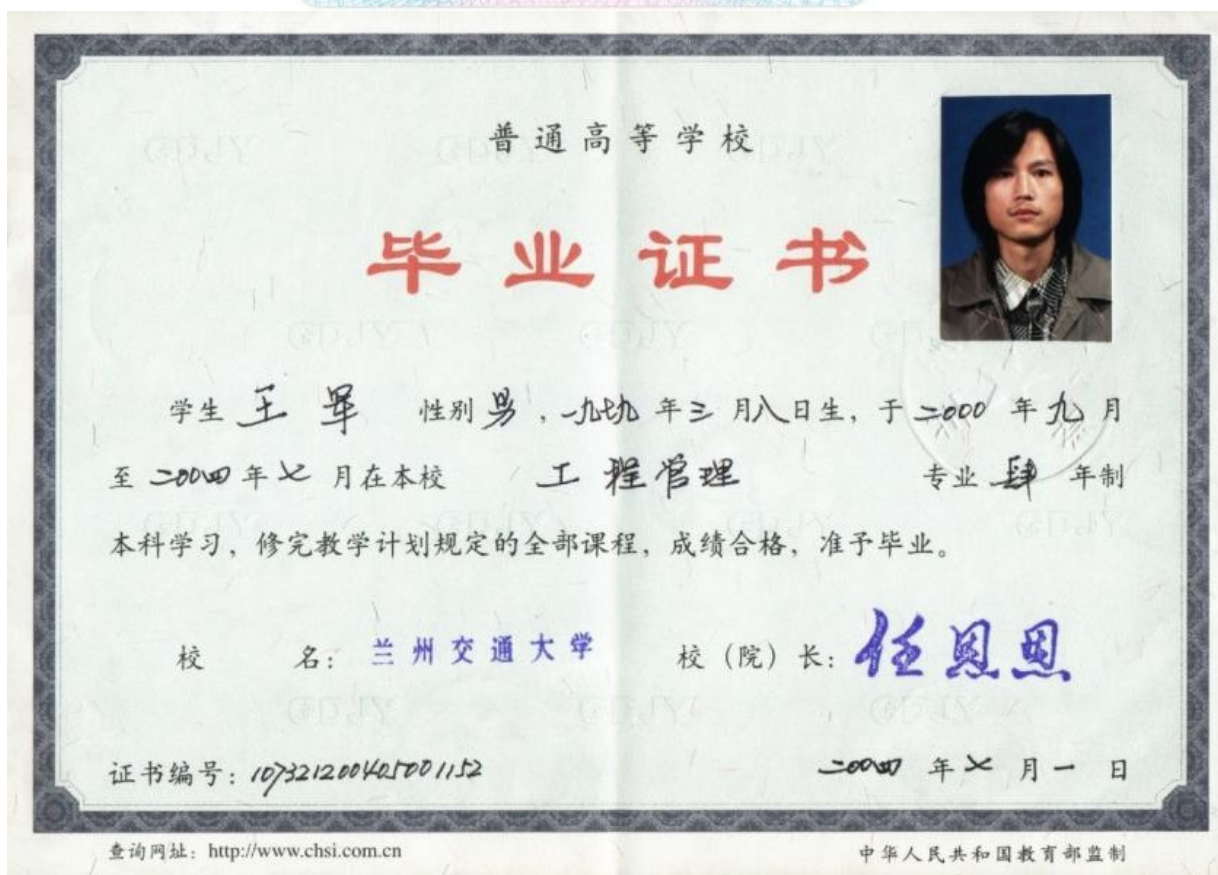 普通高等学校
毕业证书
学生 王军 性别 男，一九七九年三月八日生，于二000年九月
至二00四年七月在本校 工程管理 专业 肆 年制
本科学习，修完教学计划规定的全部课程，成绩合格，准予毕业。
校 名：兰州交通大学 校（院）长：任恩恩
证书编号：107321200405001152 二00四年七月一日
查询网址：http://www.chsi.com.cn 中华人民共和国教育部监制